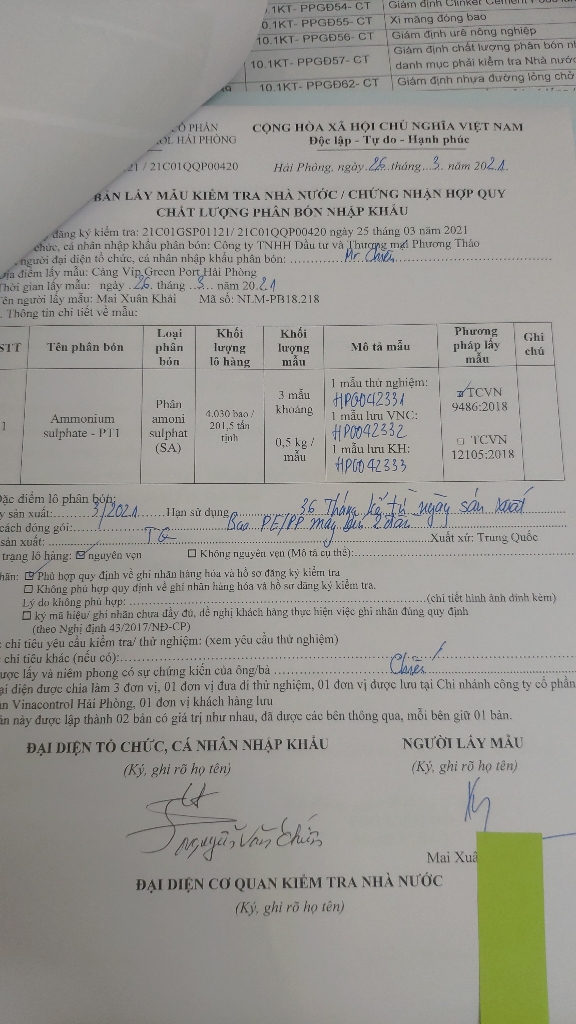 .1KT- PPGĐ54- CT Giám định Clinker Cement
0.1KT- PPGĐ55- CT Xi măng đóng bao
10.1KT- PPGĐ56- CT Giám định urê nông nghiệp
10.1KT- PPGĐ57- CT Giám định chất lượng phân bón
danh mục phải kiểm tra Nhà nước
10.1KT- PPGĐ62- CT Giám định nhựa đường lỏng chở
CỔ PHẦN CỘNG HÒA XÃ HỘI CHỦ NGHĨA VIỆT NAM
OL HẢI PHÒNG Độc lập - Tự do - Hạnh phúc
21 / 21C01QQP00420 Hải Phòng, ngày 26 tháng 3 năm 2021
BẢN LẤY MẪU KIỂM TRA NHÀ NƯỚC / CHỨNG NHẬN HỢP QUY
CHẤT LƯỢNG PHÂN BÓN NHẬP KHẨU
đăng ký kiểm tra: 21C01GSP01121/ 21C01QQP00420 ngày 25 tháng 03 năm 2021
chức, cá nhân nhập khẩu phân bón: Công ty TNHH Đầu tư và Thương mại Phương Thảo
người đại diện tổ chức, cá nhân nhập khẩu phân bón: Mr. Chiến
địa điểm lấy mẫu: Cảng Vip Green Port Hải Phòng
Thời gian lấy mẫu: ngày 26 tháng 3 năm 2021
ên người lấy mẫu: Mai Xuân Khải Mã số: NLM-PB18.218
. Thông tin chi tiết về mẫu:
STT Tên phân bón Loại phân bón Khối lượng lô hàng Khối lượng mẫu Mô tả mẫu Phương pháp lấy mẫu Ghi chú
1 Ammonium sulphate - PT1 Phân amoni sulphat (SA) 4.030 bao / 201,5 tấn tịnh 3 mẫu khoảng 0,5 kg / mẫu
1 mẫu thử nghiệm:
HPG042331
1 mẫu lưu VNC:
HPG042332
1 mẫu lưu KH:
HPG042333
☑ TCVN 9486:2018
☐ TCVN 12105:2018
Đặc điểm lô phân bón:
y sản xuất: 3/2021 Hạn sử dụng 36 Tháng kể từ ngày sản xuất
cách đóng gói: Bao PE/PP máy 2 đầu
sản xuất: TQ Xuất xứ: Trung Quốc
trạng lô hàng: ☑ nguyên vẹn ☐ Không nguyên vẹn (Mô tả cụ thể):
hãn: ☑ Phù hợp quy định về ghi nhãn hàng hóa và hồ sơ đăng ký kiểm tra
☐ Không phù hợp quy định về ghi nhãn hàng hóa và hồ sơ đăng ký kiểm tra.
Lý do không phù hợp: (chi tiết hình ảnh đính kèm)
☐ ký mã hiệu/ ghi nhãn chưa đầy đủ, đề nghị khách hàng thực hiện việc ghi nhãn đúng quy định
(theo Nghị định 43/2017/NĐ-CP)
chỉ tiêu yêu cầu kiểm tra/ thử nghiệm: (xem yêu cầu thử nghiệm)
chỉ tiêu khác (nếu có):
ược lấy và niêm phong có sự chứng kiến của ông/bà Chiến
ại diện được chia làm 3 đơn vị, 01 đơn vị đưa đi thử nghiệm, 01 đơn vị được lưu tại Chi nhánh công ty cổ phần
n Vinacontrol Hải Phòng, 01 đơn vị khách hàng lưu
ản này được lập thành 02 bản có giá trị như nhau, đã được các bên thông qua, mỗi bên giữ 01 bản.
ĐẠI DIỆN TỔ CHỨC, CÁ NHÂN NHẬP KHẨU NGƯỜI LẤY MẪU
(Ký, ghi rõ họ tên) (Ký, ghi rõ họ tên)
Nguyễn Văn Chiến
Mai Xuâ
ĐẠI DIỆN CƠ QUAN KIỂM TRA NHÀ NƯỚC
(Ký, ghi rõ họ tên)